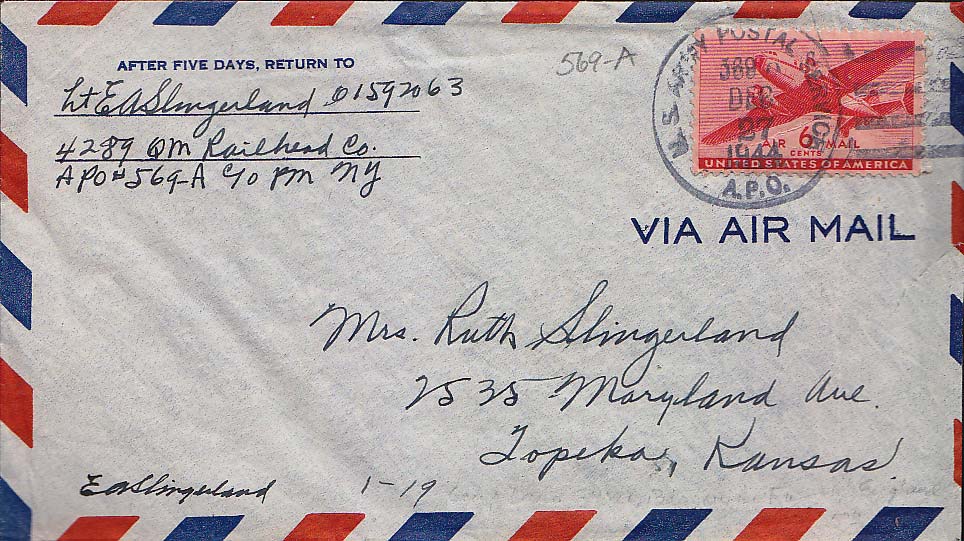 AFTER FIVE DAYS, RETURN TO
Lt E A Slingerland O1592063
4289 QM Railhead Co.
APO # 569-A c/o PM NY
569-A
U.S. ARMY POSTAL SERVICE
DEC
27
1944
A.P.O.
6
CENTS
AIR MAIL
UNITED STATES OF AMERICA
VIA AIR MAIL
Mrs. Ruth Slingerland
2535 Maryland Ave.
Topeka, Kansas
E A Slingerland
1-19